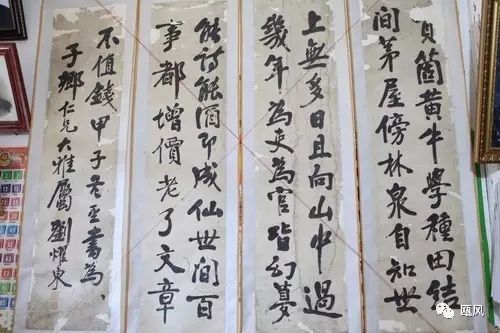 買箇黃牛學種田結
間茅屋傍林泉自知世
上無多日且向山中過
幾年為吏為官皆幻夢
能詩能酒即成仙世間百
事都增價老了文章
不值錢甲子冬至書為
子鄉仁兄大雅屬劉耀東
瓯风